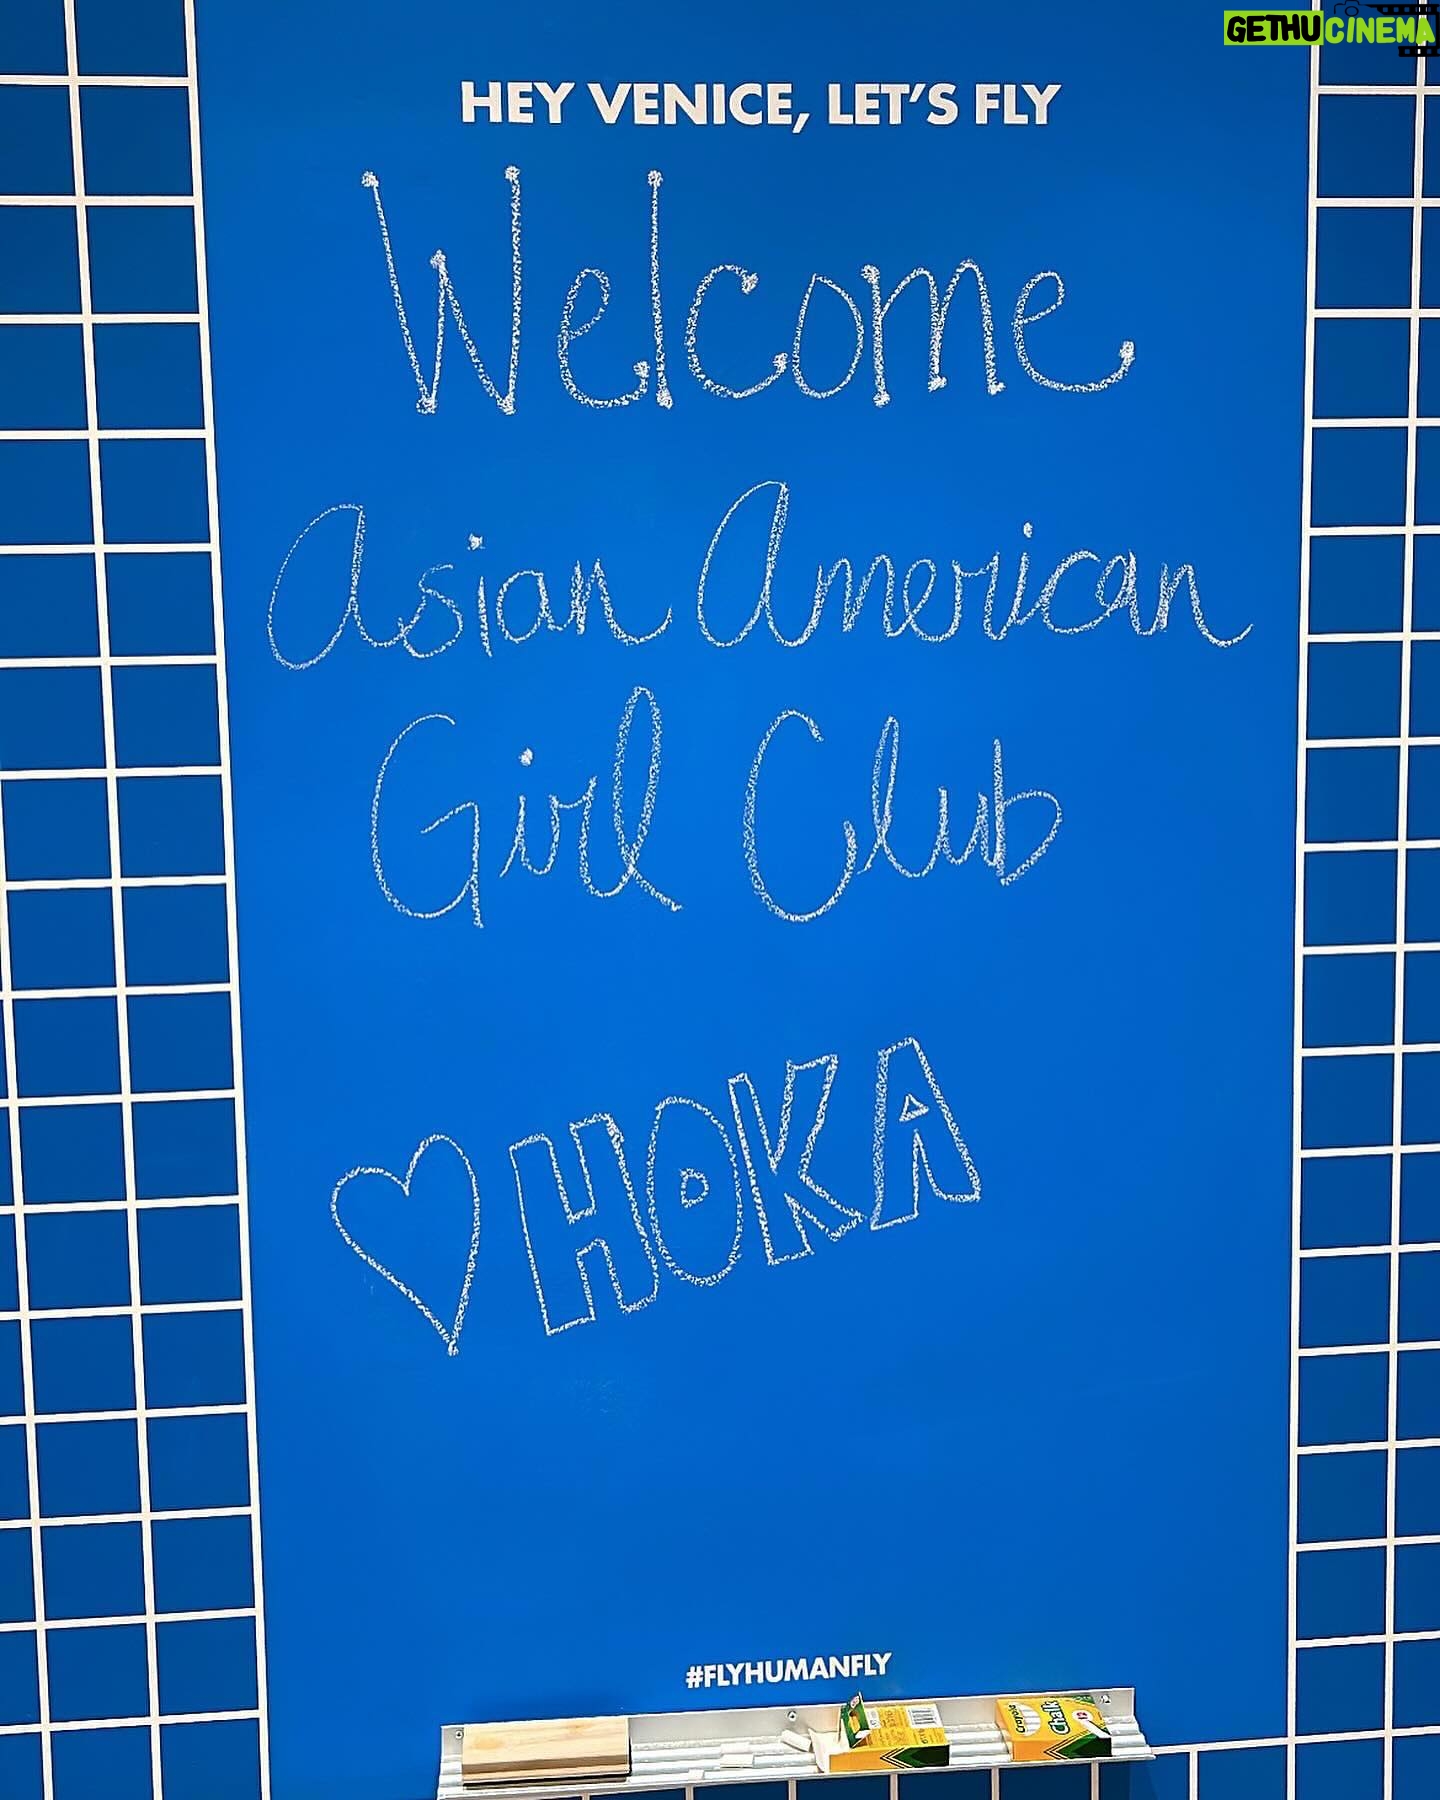 GETHUCINEMA
HEY VENICE, LET'S FLY
Welcome
Asian American
Girl Club
HOKA
#FLYHUMANFLY
Crayola
Chalk
12